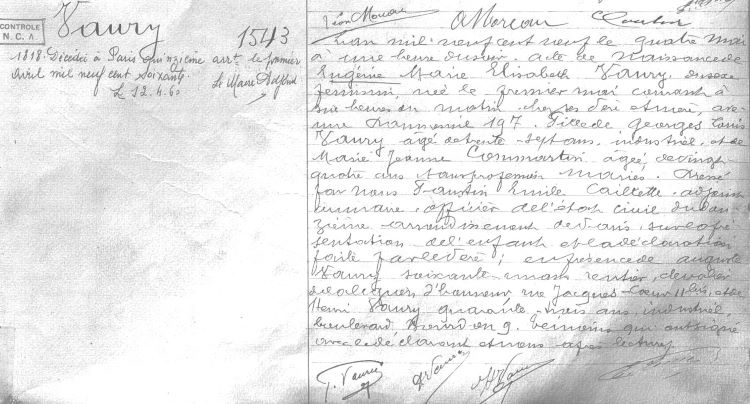 CONTROLE
N. C. A
Vaury
1543
1818. Décédée à Paris quinzième arrt. le premier
avril mil neuf cent soixante
Le 12.4.60 Le Maire Adjoint
Léon Moreau
A Moreau
L'an mil neuf cent neuf le quatre mai
à une heure du soir acte de naissance de
Eugénie Marie Elisabeth Vaury, du sexe
féminin, née le premier mai courant à
six heures du matin chez ses père et mère, ave-
nue Daumesnil 197. Fille de Georges Louis
Vaury âgé de trente-sept ans, industriel, et de
Marie Jeanne Commartin âgée de vingt-
quatre ans sans profession mariés. Dressé
par nous Faustin Emile Cailleste, adjoint
au maire, officier de l'état civil du dou-
zième arrondissement de Paris, sur la pré
sentation de l'enfant et la déclaration
faite par le père; en présence de Auguste
Vaury soixante- ans rentier, chevalier
de la légion d'honneur, rue Jacques-Coeur 11 bis, et de
Henri Vaury quarante-trois ans, industriel,
boulevard 9. témoins qui ont signé
avec le déclarant et nous après lecture.
G. Vaury
A Vaury
H Vaury